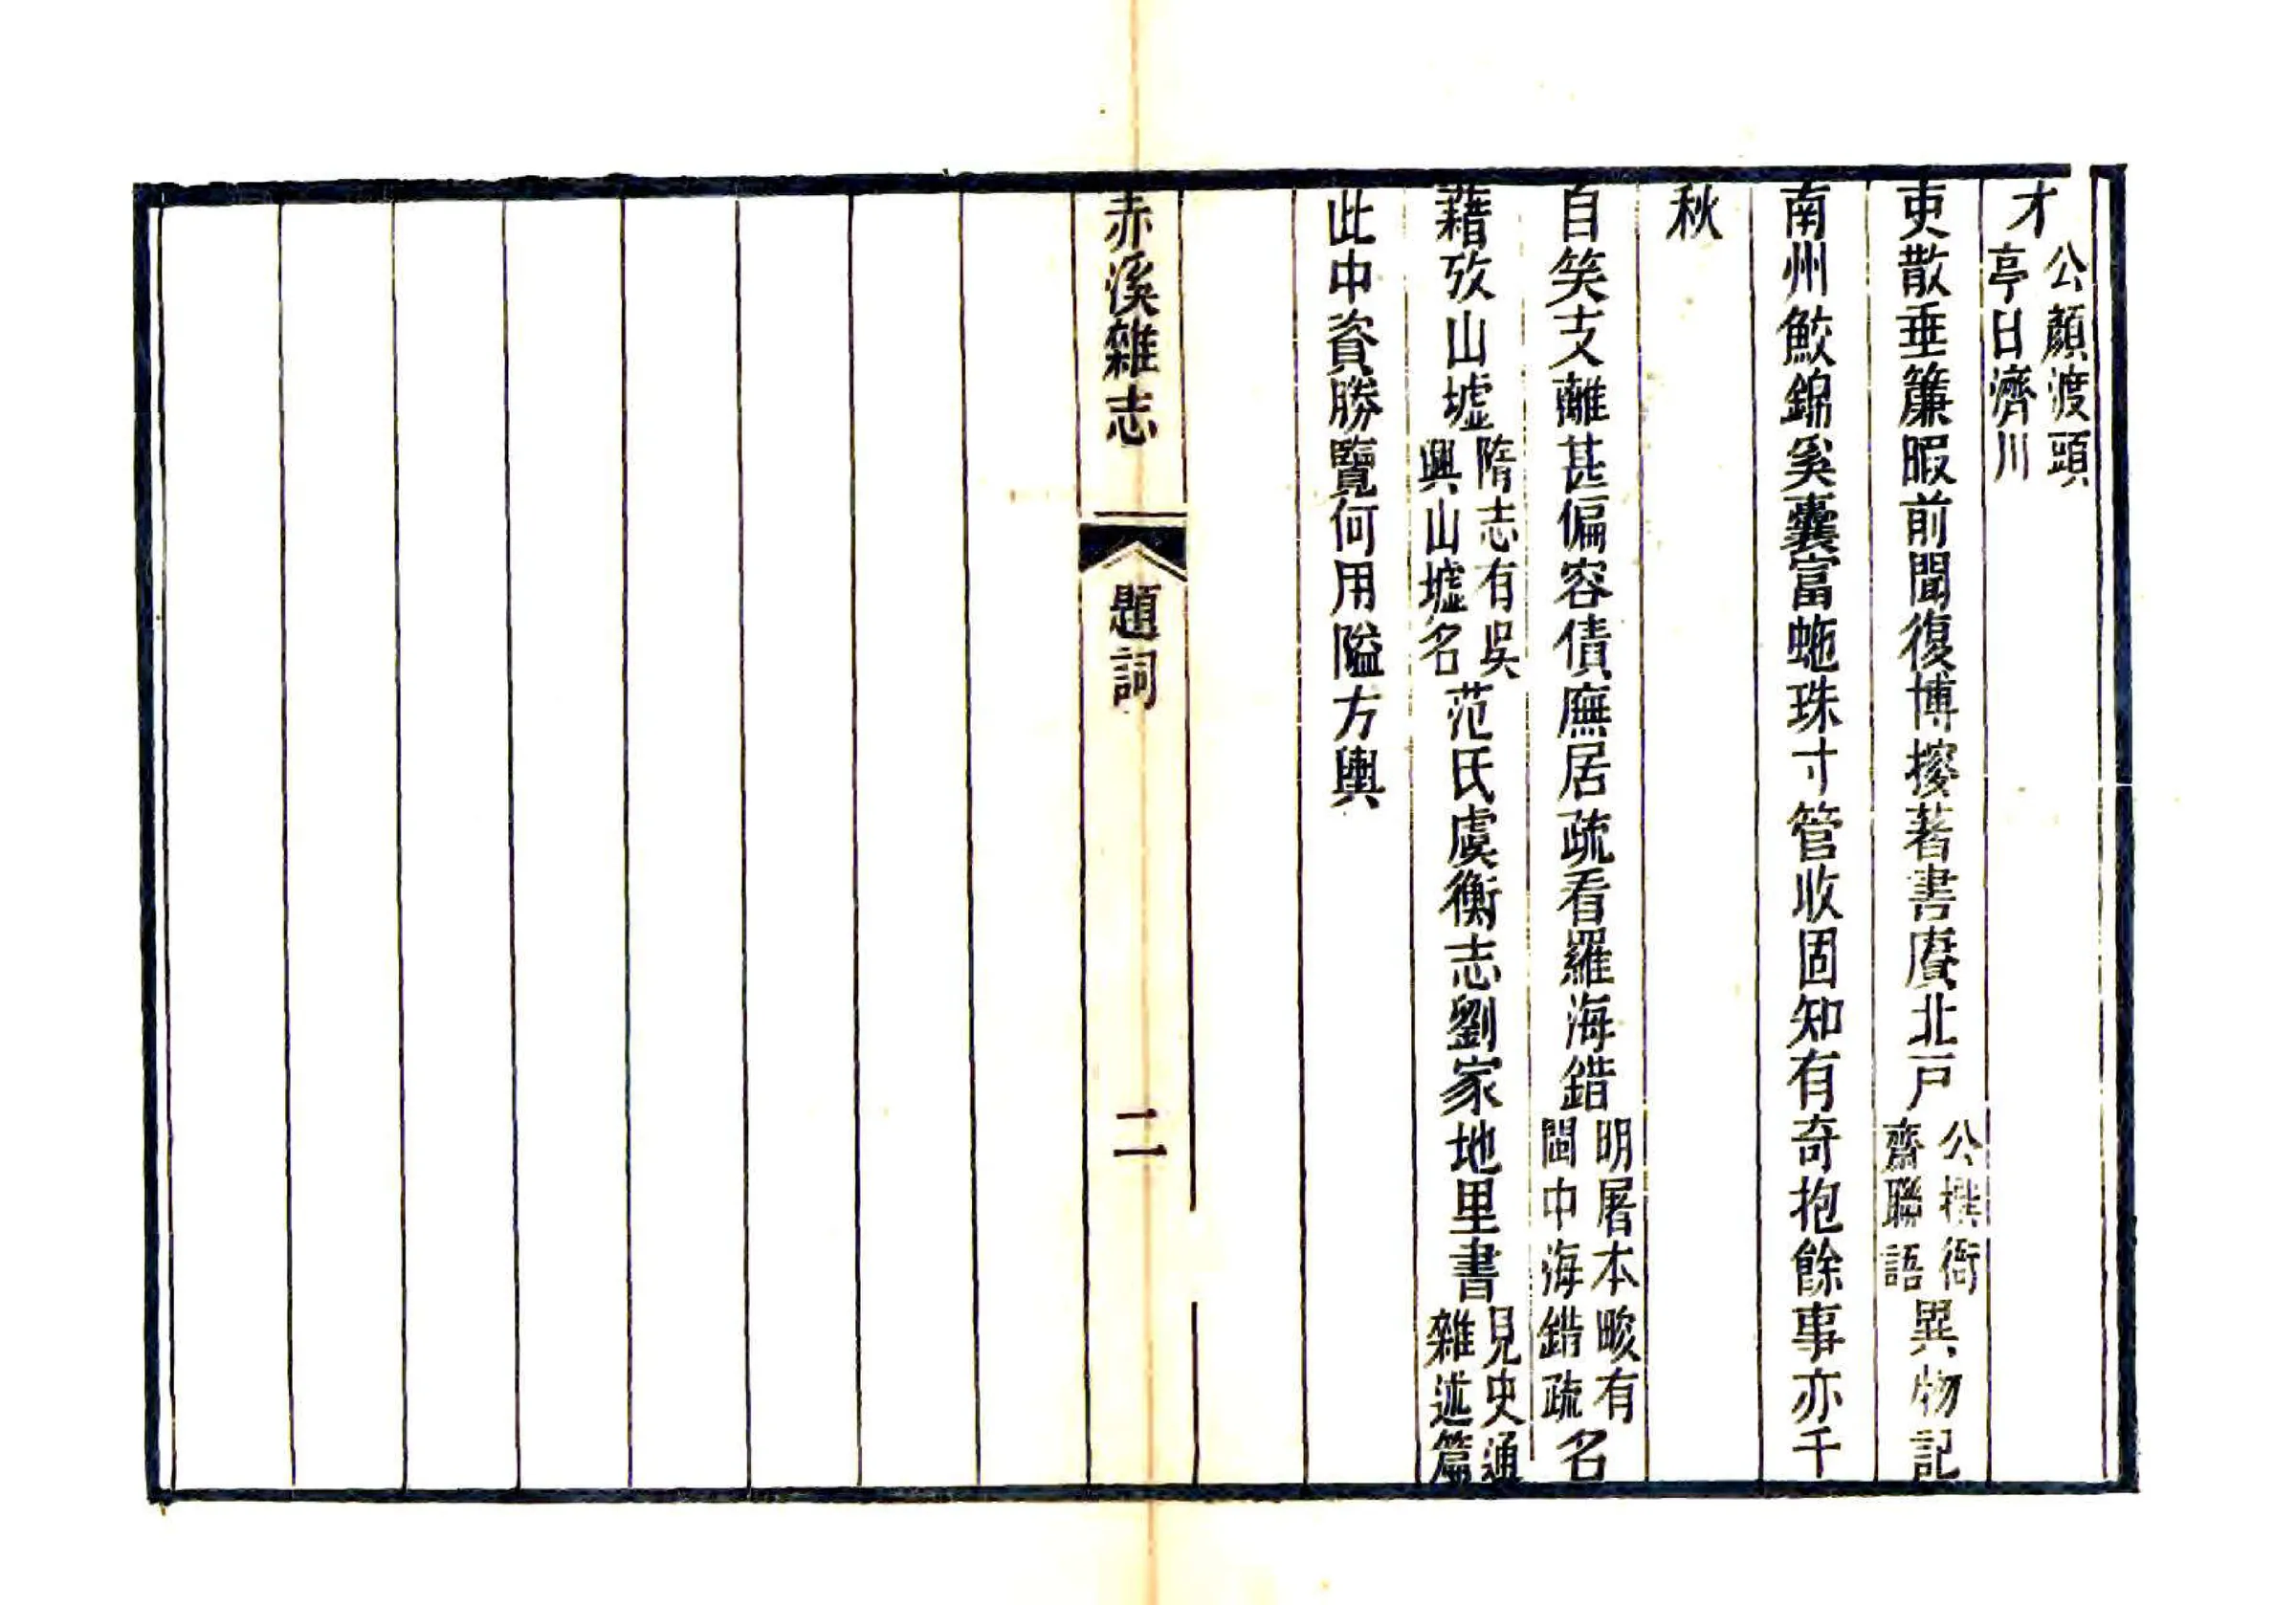 才公顏渡頭亭曰濟川
吏散垂簾暇前聞復博搜著書賡北戸公撰衙齋聯語異物記
南州鮫錦奚囊富虵珠寸管收固知有奇抱餘事亦千
秋
自笑支離甚偏容債廡居疏看羅海錯明屠本畯有閩中海錯疏名
藉攷山墟隋志有吳興山墟名范氏虞衡志劉家地里書見史通雜述篇
此中資勝覽何用隘方輿
赤溪雜志 題詞 二